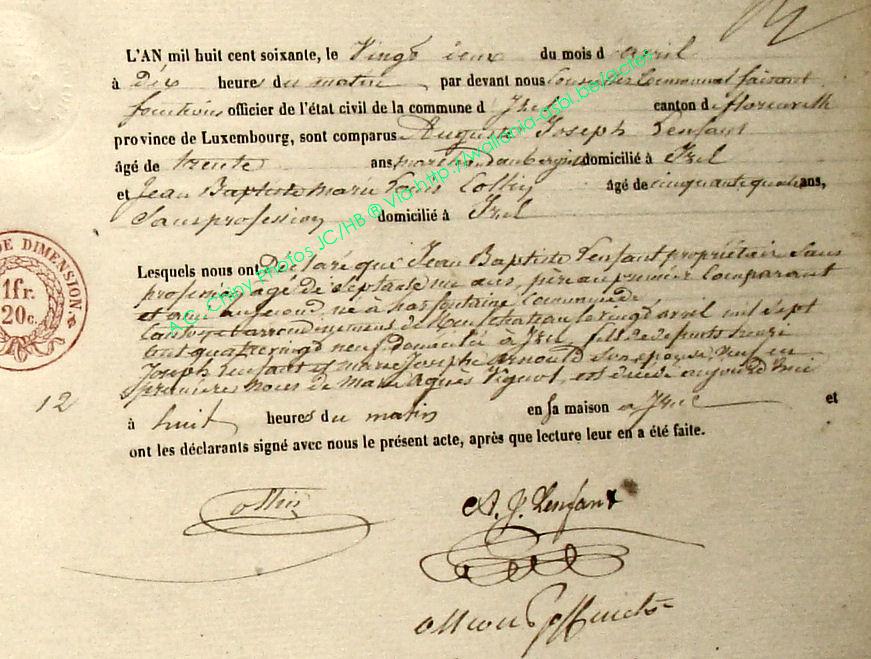 L'AN mil huit cent soixante, le Vingt deux du mois d avril
à Dix heures du matin, par devant nous Conseiller Communal faisant
fonctions officier de l'état civil de la commune d Izel canton de florenville
province de Luxembourg, sont comparus Auguste Joseph Lenfant
âgé de trente ans, domicilié à Izel
et Jean Baptiste Marie Louis Collin âgé de cinquante quatre ans,
Sans profession domicilié à Izel
Lesquels nous ont Déclaré que Jean Baptiste Lenfant propriétaire Sans
profession, âgé de Septante ans, père au premier Comparant
et ami au second, né à harfontaine Commune de
arrondissement de Neufchateau le vingt avril mil sept
cent quatre vingt neuf domicilié à Izel fils de defunts henri
Joseph Lenfant et Marie Joseph Arnould son épouse, veuf en
premières noces de Marie Agnès Pignot, est décédé aujourd'hui
12
à huit heures du matin en sa maison a Izel et
ont les déclarants signé avec nous le présent acte, après que lecture leur en a été faite.
Collin
A. J. Lenfant
DE DIMENSION.
1fr.
20c.
A.C. Chiny Photos JC/HB @ Via-http://wallonia-asbl.be/actor